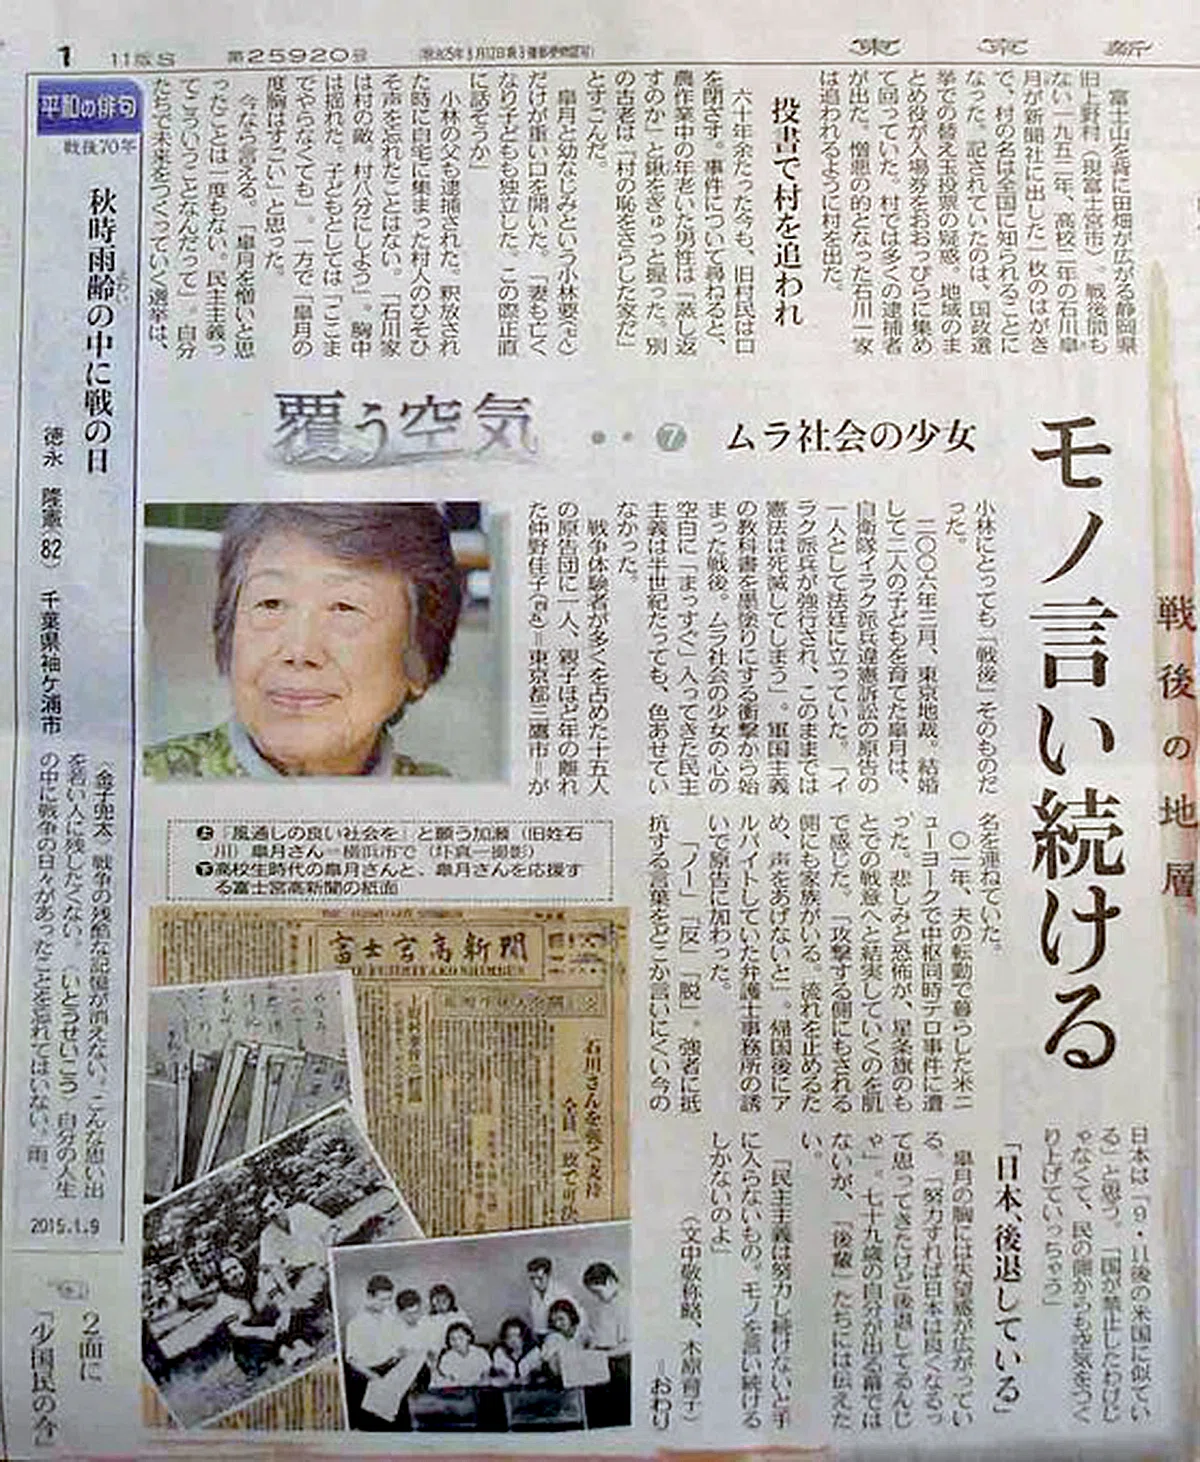 1
11版S
第25920号
東京新
富士山を背に田畑が広がる静岡県
旧上野村(現富士宮市)。戦後間も
ない一九五二年、高校二年の石川皐
月が新聞社に出した一枚のはがき
で、村の名は全国に知られることに
なった。記されていたのは、国政選
挙での替え玉投票の疑惑。地域のま
とめ役が入場券をおおっぴらに集め
て回っていた。村では多くの逮捕者
が出た。憎悪の的となった石川一家
は追われるように村を出た。
投書で村を追われ
六十年余たった今も、旧村民は口
を閉ざす。事件について尋ねると、
農作業中の年老いた男性は「蒸し返
すのか」と鍬をぎゅっと握った。別
の古老は「村の恥をさらした家だ」
とすごんだ。
皐月と幼なじみという小林要(七八)
だけが重い口を開いた。「妻も亡く
なり子どもも独立した。この際正直
に話そうか」
小林の父も逮捕された。釈放され
た時に自宅に集まった村人のひそひ
そ声を忘れたことはない。「石川家
は村の敵。村八分にしよう」。胸中
は揺れた。子どもとしては「ここま
でやらなくても」。一方で「皐月の
度胸はすごい」と思った。
今なら言える。「皐月を憎いと思
ったことは一度もない。民主主義っ
てこういうことなんだって」。自分
たちで未来をつくっていく選挙は、
モノ言い続ける
戦後の地層
覆う空気
⑦
ムラ社会の少女
小林にとっても「戦後」そのものだ
った。
二〇〇六年三月、東京地裁。結婚
して二人の子どもを育てた皐月は、
自衛隊イラク派兵違憲訴訟の原告の
一人として法廷に立っていた。「イ
ラク派兵が強行され、このままでは
憲法は死滅してしまう」。軍国主義
の教科書を墨塗りにする衝撃から始
まった戦後。ムラ社会の少女の心の
空白に「まっすぐ」入ってきた民主
主義は半世紀たっても、色あせてい
なかった。
戦争体験者が多くを占めた十五人
の原告団に一人、親子ほど年の離れ
た仲野佳子=東京都三鷹市=が
名を連ねていた。
〇一年、夫の転勤で暮らした米ニ
ューヨークで中枢同時テロ事件に遭
った。悲しみと恐怖が、星条旗のも
とでの戦意へと結実していくのを肌
で感じた。「攻撃する側にもされる
側にも家族がいる。流れを止めるた
め、声をあげないと」。帰国後にア
ルバイトしていた弁護士事務所の誘
いで原告に加わった。
「ノー」「反」「脱」。強者に抵
抗する言葉をどこか言いにくい今の
日本は「9・11後の米国に似てい
る」と思う。「国が禁止したわけじ
ゃなくて、民の側からも空気をつく
り上げていっちゃう」
「日本、後退している」
皐月の胸には失望感が広がってい
る。「努力すれば日本は良くなるっ
て思ってきたけど後退してるんじ
ゃ」。七十九歳の自分が出る幕では
ないが、「後輩」たちには伝えた
い。
「民主主義は努力し続けないと手
に入らないもの。モノを言い続ける
しかないのよ」
(文中敬称略、木原育子)
=おわり
上「風通しの良い社会を」と願う加瀬(旧姓石
川)皐月さん=横浜市で(圷真一撮影)
下高校生時代の皐月さんと、皐月さんを応援す
る富士宮高新聞の紙面
富士宮高新聞
石川さんを強く支持
全員一致で可決
平和の俳句
戦後70年
秋時雨齢の中に戦の日
よわい
徳永 隆憲(82) 千葉県袖ケ浦市
〈金子兜太〉戦争の残酷な記憶が消えない。こんな思い出
を若い人に残したくない。〈いとうせいこう〉自分の人生
の中に戦争の日々があったことを忘れてはいない。雨。
2015.1.9
2面に
「少国民の今」